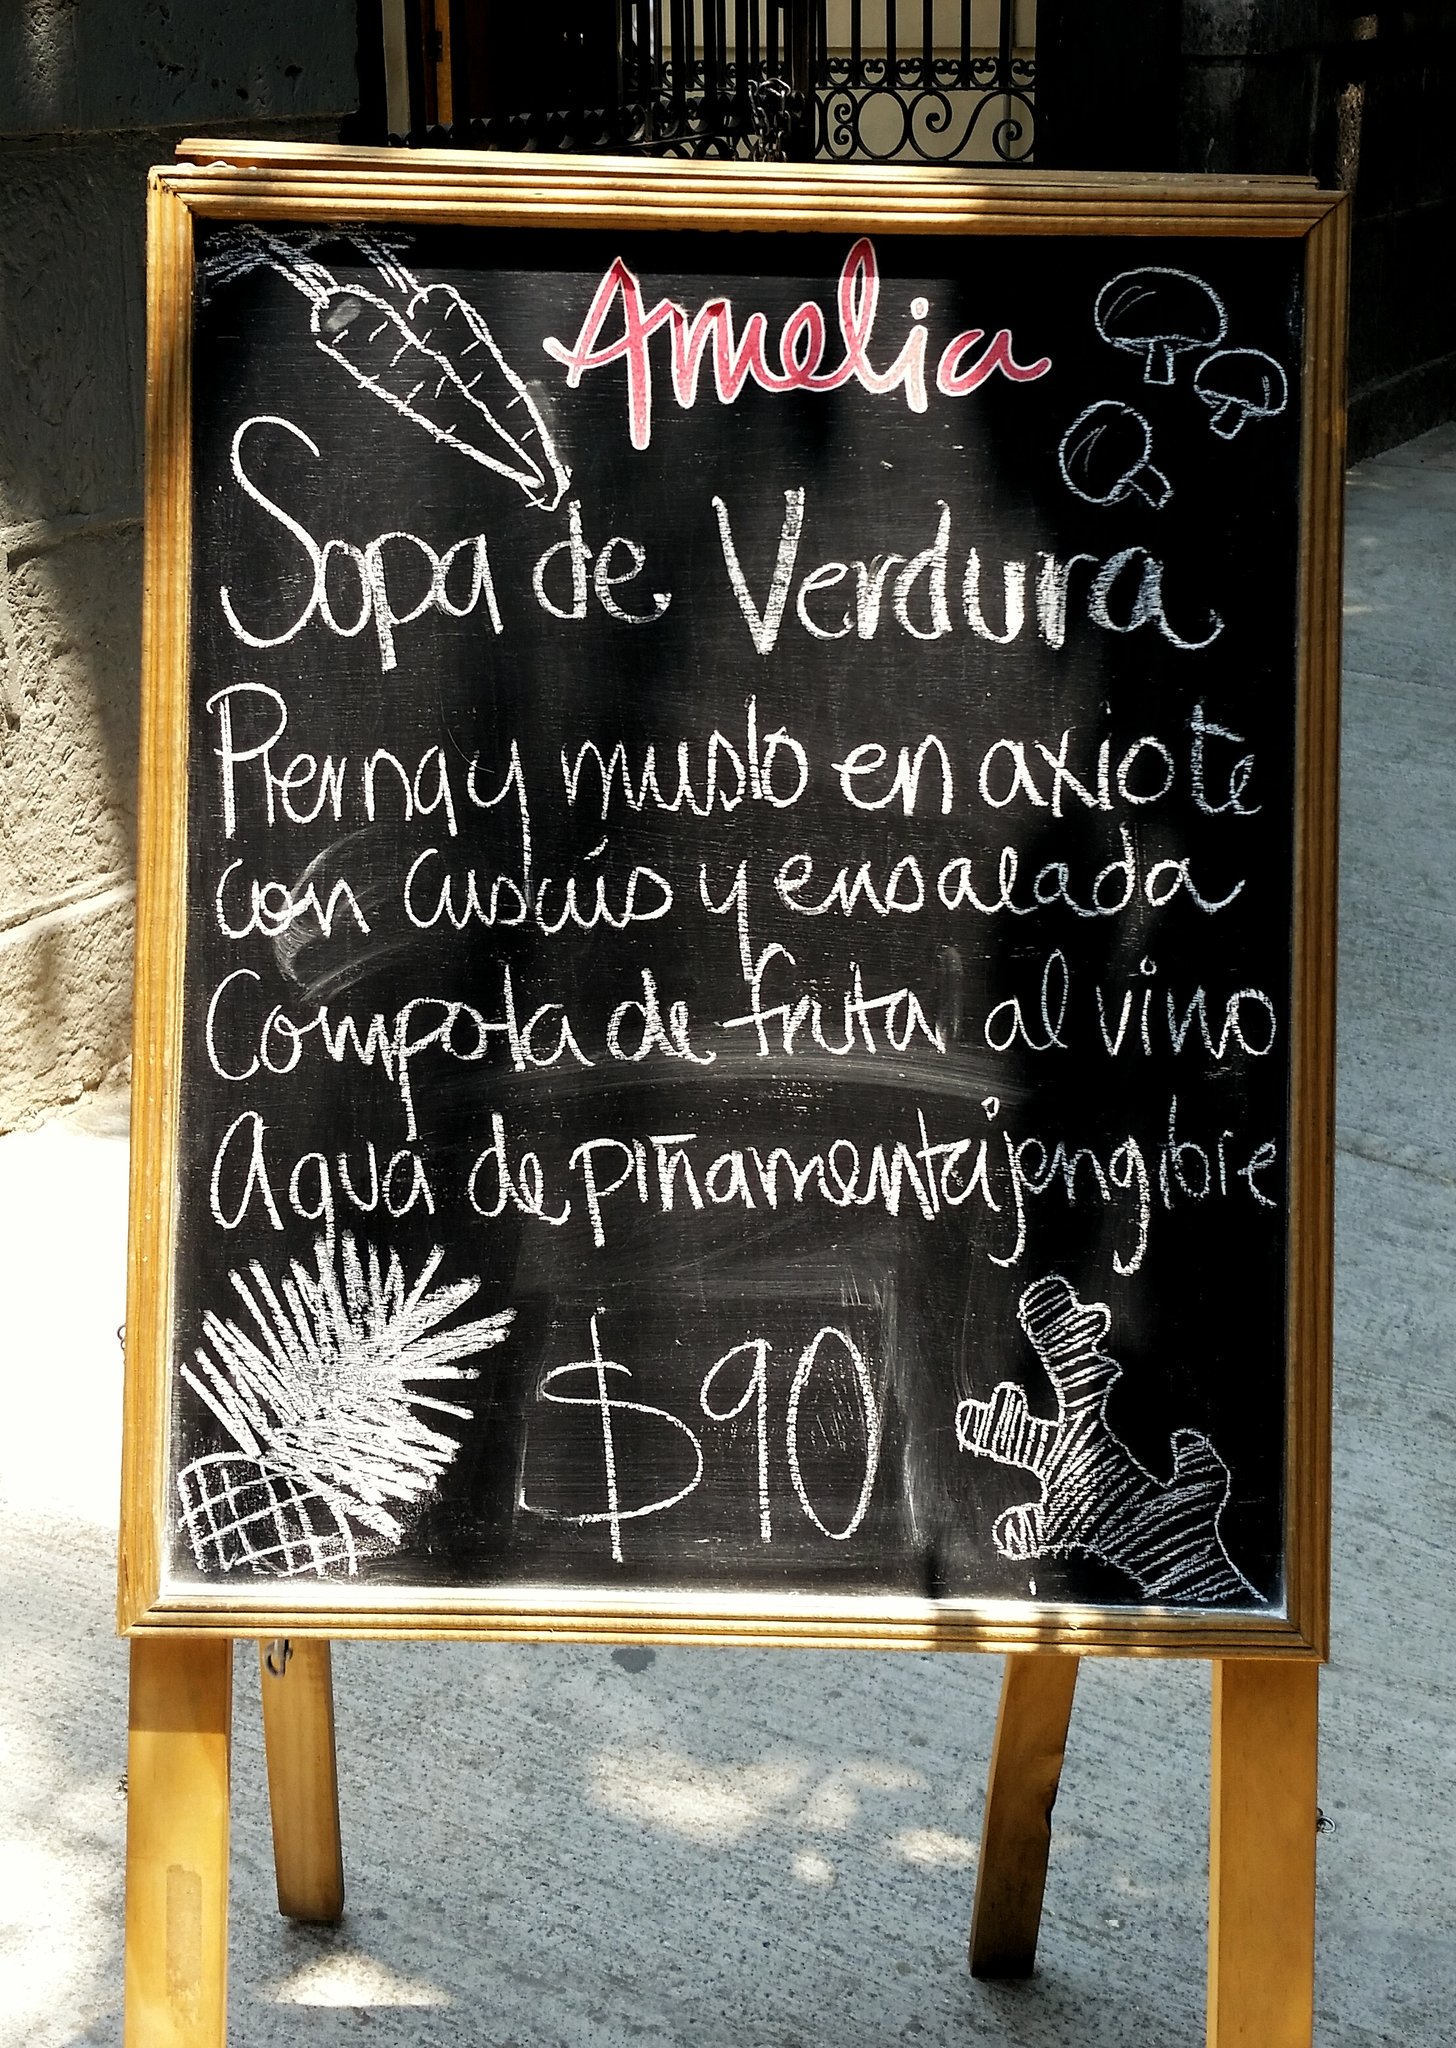 Amelia
Sopa de Verdura
Pierna y muslo en axiote
con cuscús y ensalada
Compota de fruta al vino
Agua de piña menta jengibre
$90